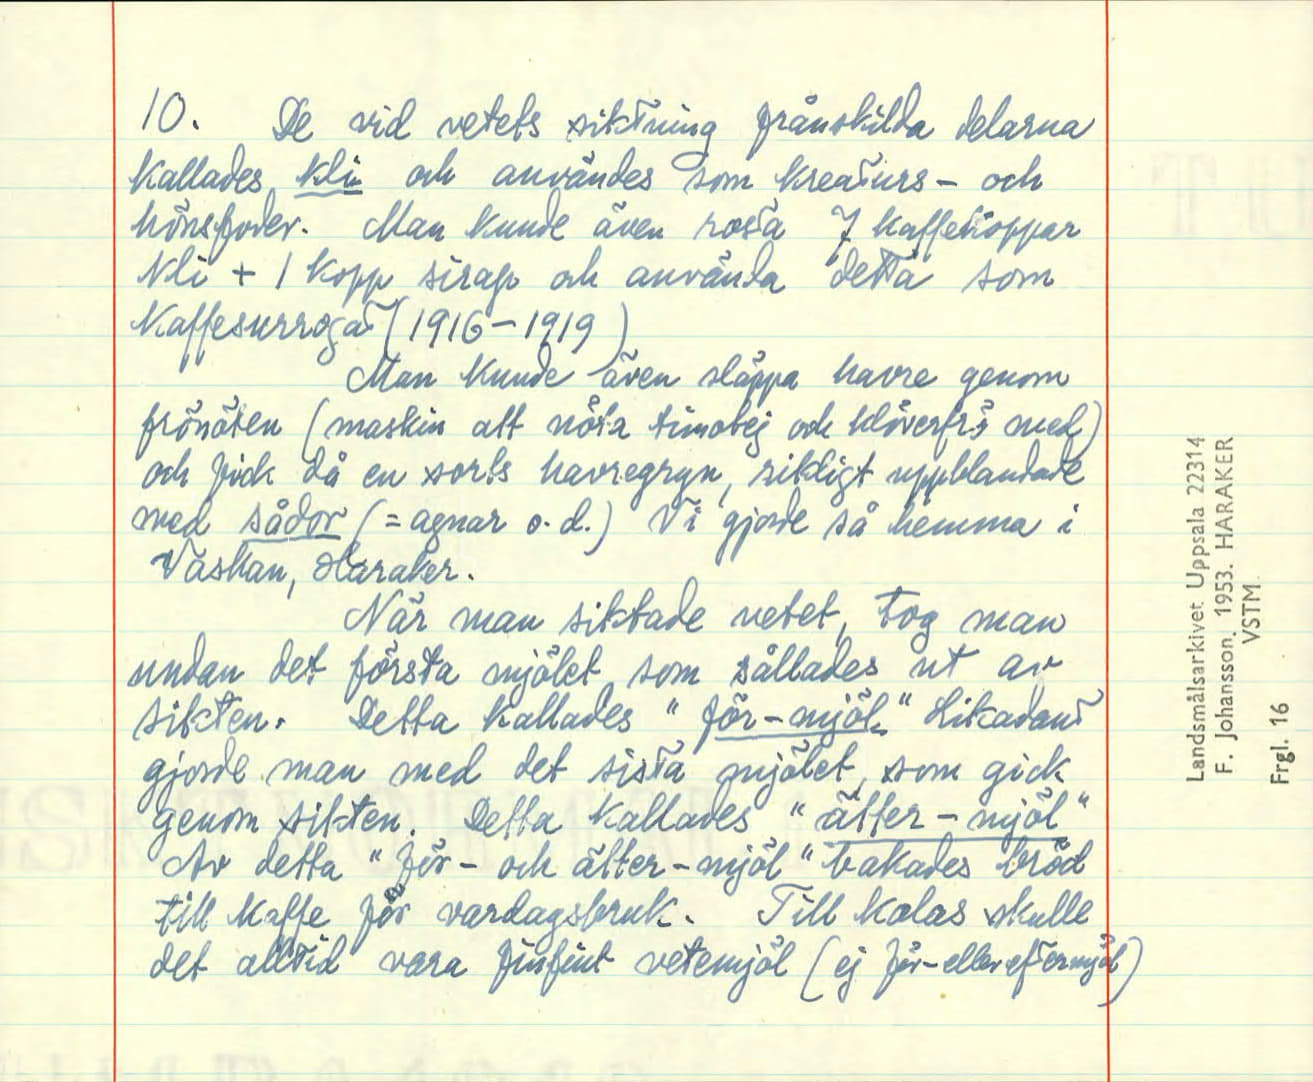 10. De vid vetets siktning frånskilda delarna
kallades kli och användes som kreaturs- och
hönsfoder. Man kunde även rosta 7 kaffekoppar
kli + 1 kopp sirap och använda detta som
kaffesurrogat (1916-1919)
Man kunde även släppa havre genom
frönöten (maskin att nöta timotej och klöverfrö med)
och fick då en sorts havregryn, rikligt uppblandade
med sådor (= agnar o. d.) Vi gjorde så hemma i
Väskan, Haraker.
När man siktade vetet, tog man
undan det första mjölet som sållades ut av
sikten. Detta kallades "för-mjöl" Likadant
gjorde man med det sista mjölet, som gick
genom sikten. Detta kallades "ätter-mjöl"
Av detta "för- och ätter-mjöl" bakades bröd
till kaffe för vardagsbruk. Till kalas skulle
det alltid vara finfint vetemjöl (ej för- eller eftermjöl)
Landsmålsarkivet Uppsala 22314
F. Johansson. 1953. HARAKER
VSTM.
Frgl. 16